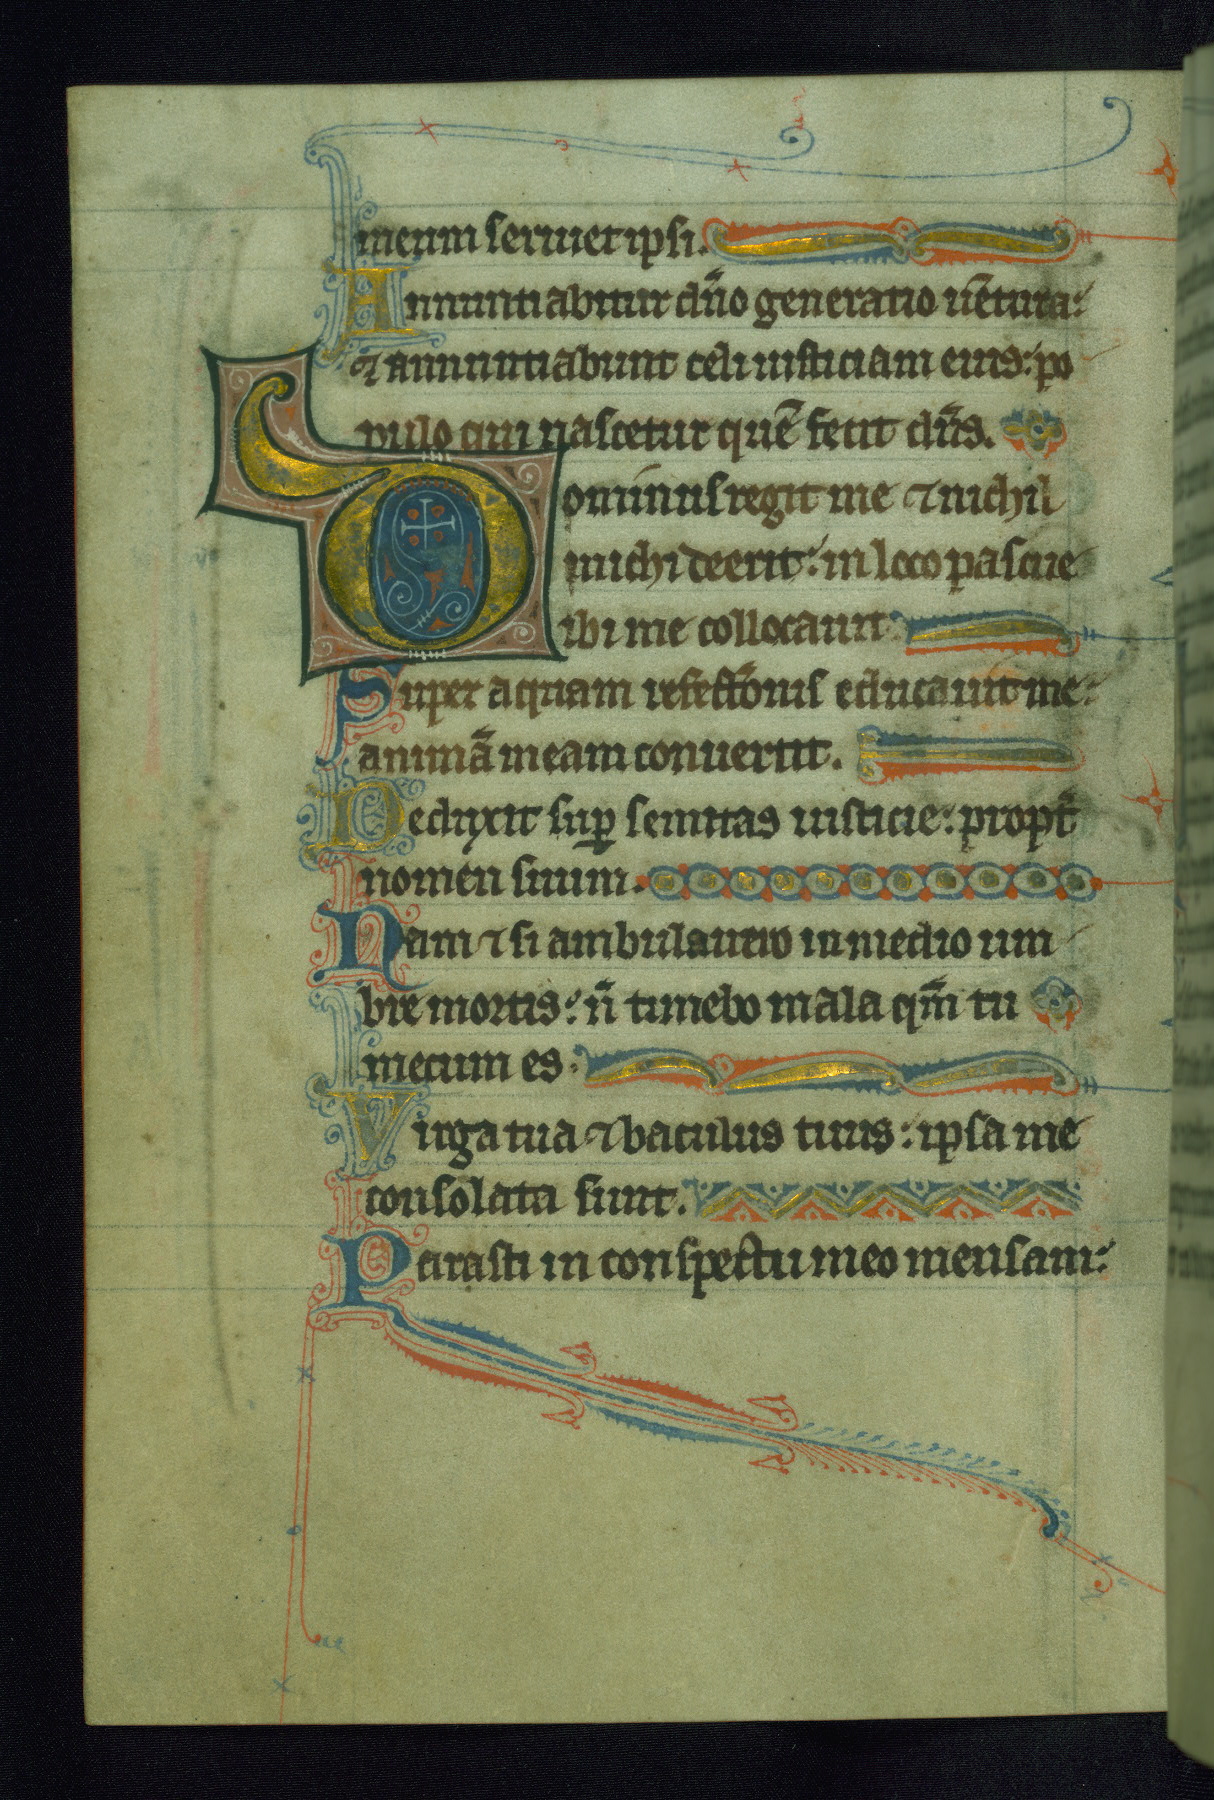 meum seruiet ipsi.
Annuntiabitur dño generatio uētura:
⁊ annuntiabunt celi iusticiam eius: po
pulo qui nascetur quē fecit dñs.
Dominus regit me ⁊ nichil
michi deerit: in loco pascue
ibi me collocauit
Super aquam refectōnis educauit me:
animā meam conuertit.
Deduxit suꝑ semitas iusticie: propt̄
nomen suum.
Nam ⁊ si ambulauero in medio um
bre mortis: ñ timebo mala qm̄ tu
mecum es.
Virga tua ⁊ baculus tuus: ipsa me
consolata sunt.
Parasti in conspectu meo mensam: